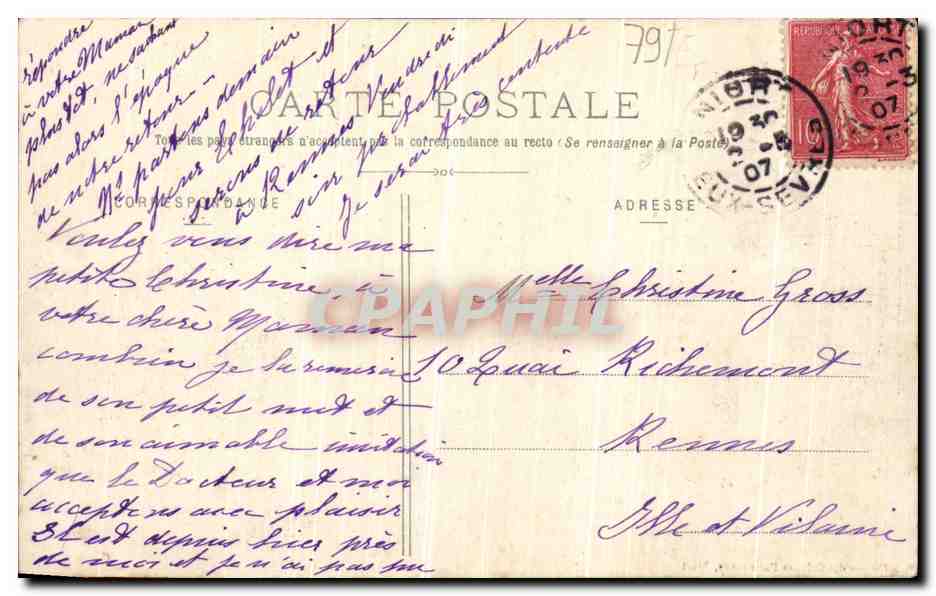 79
CARTE POSTALE
Tous les pays étrangers n'acceptent pas la correspondance au recto (Se renseigner à la Poste)
CORRESPONDANCE
ADRESSE
REPUBLIQUE
10
NIORT
19 30
07
DEUX-SEVRES
NIORT
19 30
07
Melle Christine Gross
10 Quai Richemont
Rennes
Ille et Vilaine
Voulez vous dire ma
petite Christine à
votre chère Maman
combien je la remercie
de son petit mot et
de son aimable invitation
que le Docteur et moi
acceptons avec plaisir
Il est depuis hier près
de moi et je n'ai pas pu
répondre
à votre Maman
plus tôt, ne sachant
pas alors l'époque
de notre retour -
Ns partons demain
pour Cholet et
serons de retour
à Rennes Vendredi
soir probablement
Je serai très contente
CPAPHIL